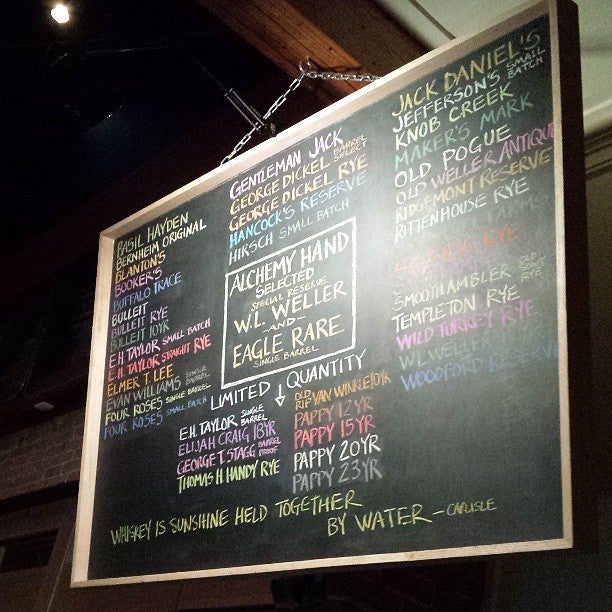 BASIL HAYDEN
BERNHEIM ORIGINAL
BLANTON'S
BOOKER'S
BUFFALO TRACE
BULLEIT
BULLEIT RYE
BULLEIT 10YR
E.H. TAYLOR SMALL BATCH
E.H. TAYLOR STRAIGHT RYE
ELMER T. LEE
EVAN WILLIAMS SINGLE BARREL
FOUR ROSES SINGLE BARREL
FOUR ROSES SMALL BATCH
GENTLEMAN JACK
GEORGE DICKEL BARREL SELECT
GEORGE DICKEL RYE
HANCOCK'S RESERVE
HIRSCH SMALL BATCH
ALCHEMY HAND
SELECTED
SPECIAL RESERVE
W.L. WELLER
—AND—
EAGLE RARE
SINGLE BARREL
JACK DANIEL'S
JEFFERSON'S SMALL BATCH
KNOB CREEK
MAKER'S MARK
OLD POGUE
OLD WELLER ANTIQUE
RIDGEMONT RESERVE
RITTENHOUSE RYE
RYE
SMOOTH AMBLER OLD SCOUT RYE
TEMPLETON RYE
WILD TURKEY RYE
WL WELLER
WOODFORD RESERVE
LIMITED ↓ QUANTITY
E.H. TAYLOR SINGLE BARREL
ELIJAH CRAIG 18YR
GEORGE T. STAGG BARREL PROOF
THOMAS H HANDY RYE
OLD RIP VAN WINKLE 10YR
PAPPY 12YR
PAPPY 15YR
PAPPY 20YR
PAPPY 23YR
WHISKEY IS SUNSHINE HELD TOGETHER
BY WATER - CARLISLE